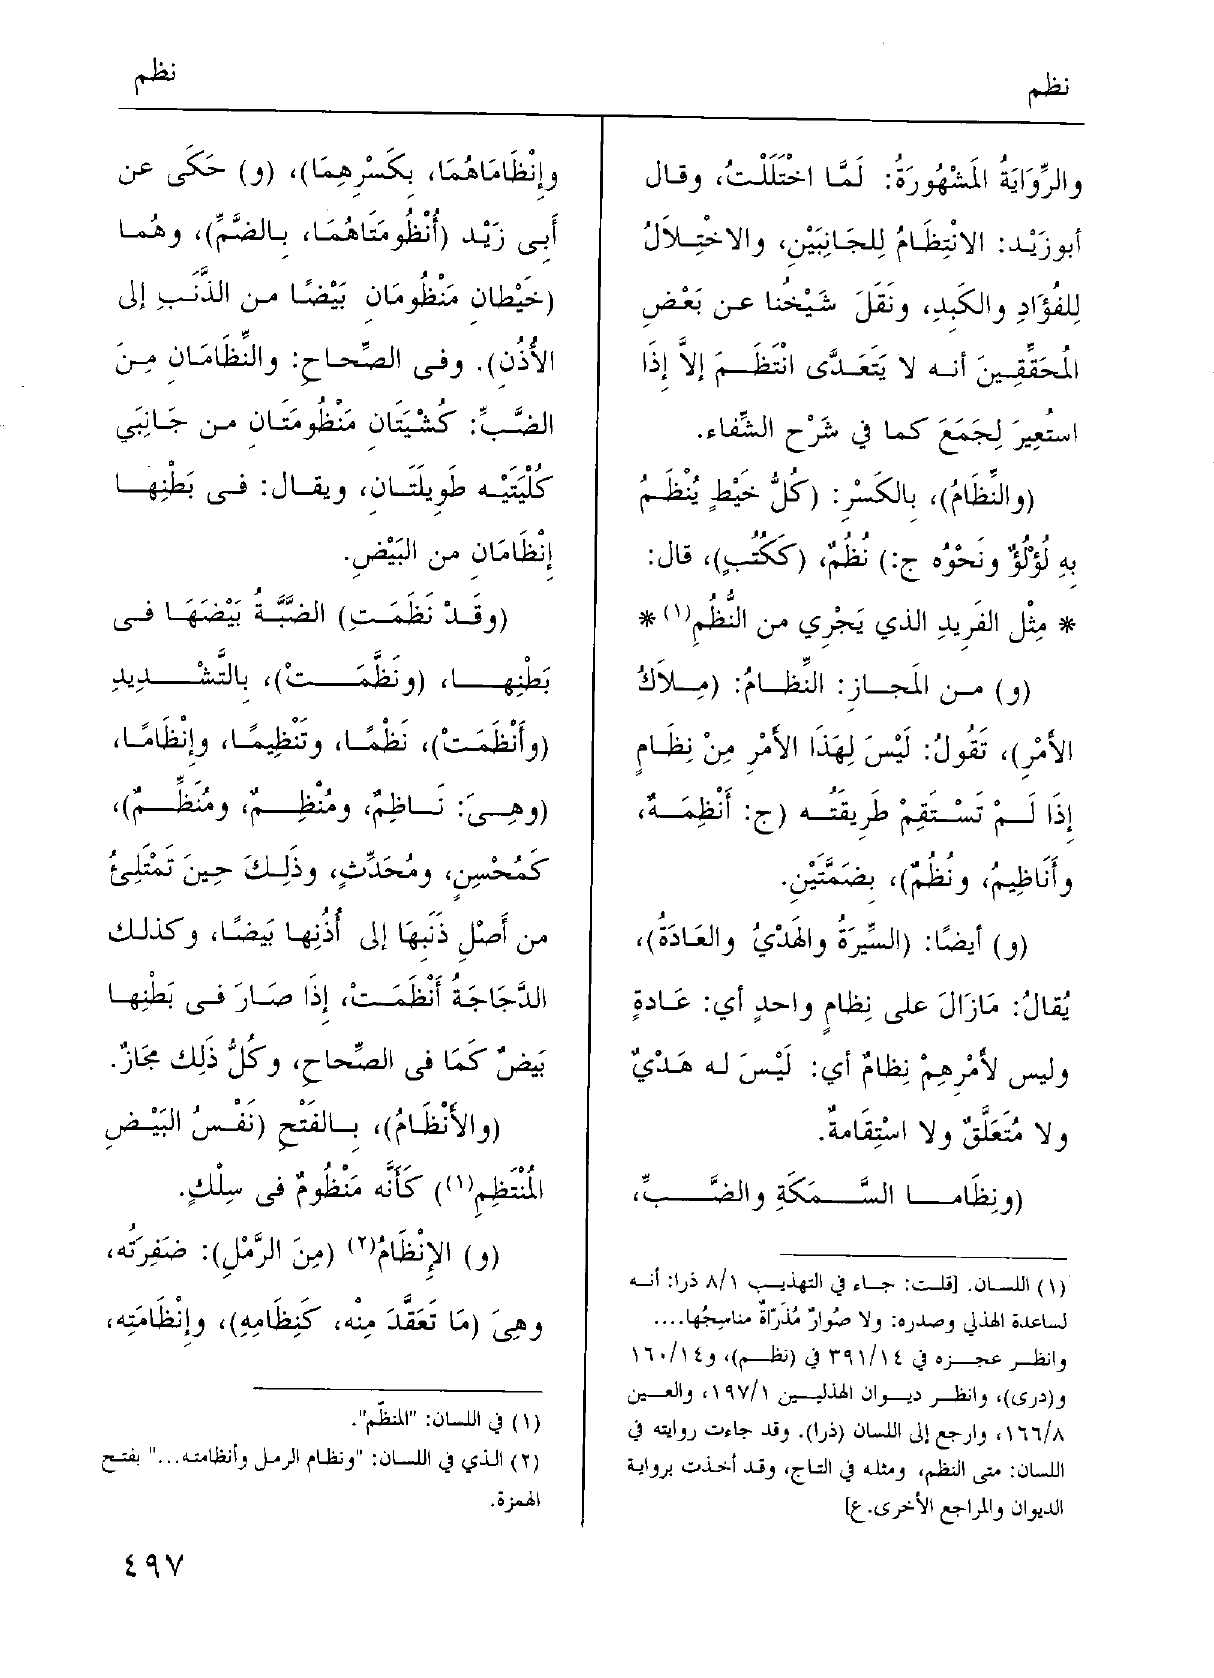 نظم
نظم
والرِّوَايَةُ المَشْهُورَةُ: لَمَّا اخْتَلَلْتُ، وقال
أبوزَيْد: الانْتِظَامُ لِلجَانِبَيْنِ، والاخْتِلاَلُ
لِلفُؤَادِ والكَبِدِ، ونَقَلَ شَيْخُنا عن بَعْضِ
المُحَقِّقِينَ أنه لا يَتَعَدَّى انْتَظَمَ إلاَّ إذَا
استُعِيرَ لِجَمَعَ كما في شَرْحِ الشِّفاء.
(والنِّظَامُ)، بالكَسْرِ: (كُلُّ خَيْطٍ يُنْظَمُ
بِهِ لُؤْلُؤٌ ونَحْوُه ج:) نُظُمٌ، (كَكُتُبٍ)، قال:
* مِثْل الفَرِيدِ الذي يَجْرِي من النُّظُمِ(١) *
(و) من المَجازِ: النِّظَامُ: (مِلاَكُ
الأَمْرِ)، تَقُولُ: لَيْسَ لِهَذَا الأَمْرِ مِنْ نِظَامٍ
إذَا لَمْ تَسْتَقِمْ طَرِيقَتُه (ج: أَنْظِمَةٌ،
وأَنَاظِيمُ، ونُظُمٌ)، بِضَمَّتَيْنِ.
(و) أيضًا: (السِّيرَةُ والهَدْيُ والعَادَةُ)،
يُقالُ: مَازَالَ على نِظامٍ واحدٍ أي: عَادةٍ
وليس لأمْرِهِمْ نِظامٌ أي: لَيْسَ له هَدْيٌ
ولا مُتَعَلَّقٌ ولا استِقَامةٌ.
(ونِظَاما السَّمَكَةِ والضَّبِّ،
(١) اللسان. [قلت: جاء في التهذيب ٨/١ ذرا: أنه
لساعدة الهذلي وصدره: ولا صُوارٌ مُذَرَّاةٌ مناسِجُها....
وانظر عجزه في ٣٩١/١٤ في (نظم)، و١٦٠/١٤
و(درى)، وانظر ديوان الهذليين ١٩٧/١، والعين
١٦٦/٨، وارجع إلى اللسان (ذرا). وقد جاءت روايته في
اللسان: متى النظم، ومثله في التاج، وقد أخذت برواية
الديوان والمراجع الأخرى.ع]
وإنْظَامَاهُمَا، بِكَسْرِهِمَا)، (و) حَكَى عن
أَبِى زَيْد (أُنْظُومَتَاهُمَا، بالضَّمِّ)، وهُما
(خَيْطانِ مَنْظُومَانِ بَيْضًا من الذَّنَبِ إلى
الأُذُنِ). وفى الصِّحاح: والنِّظَامَانِ مِنَ
الضَّبِّ: كُشْيَتَانِ مَنْظُومَتَانِ من جَانِبَي
كُلْيَتَيْهِ طَوِيلَتَانِ، ويقال: فى بَطْنِها
إنْظَامَانِ من البَيْضِ.
(وقَدْ نَظَمَتِ) الضَّبَّةُ بَيْضَهَا فى
بَطْنِها، (ونَظَّمَتْ)، بالتَّشْدِيدِ
(وأَنْظَمَتْ)، نَظْمًا، وتَنْظِيمًا، وإنْظَامًا،
(وهِىَ: نَاظِمٌ، ومُنْظِمٌ، ومُنَظِّمٌ)،
كَمُحْسِنٍ، ومُحَدِّثٍ، وذَلِكَ حِينَ تَمْتَلِئُ
من أَصْلِ ذَنَبِهَا إلى أُذُنِها بَيضًا، وكذلك
الدَّجَاجَةُ أَنْظَمَتْ، إذَا صَارَ فى بَطْنِها
بَيضٌ كَمَا فى الصِّحاحِ، وكُلُّ ذَلِكَ مَجازٌ.
(والأَنْظَامُ)، بِالفَتْحِ (نَفْسُ البَيْضِ
المُنْتَظِمِ(١)) كَأَنَّه مَنْظُومٌ فى سِلْكٍ.
(و) الإنْظَامُ(٢) (مِنَ الرَّمْلِ): ضَفِرَتُه،
وهِىَ (مَا تَعَقَّدَ مِنْه، كَنِظَامِهِ)، وإنْظَامَتِه،
(١) في اللسان: "المنظّم".
(٢) الذي في اللسان: "ونظام الرمل وأنظامته..." بفتح
الهمزة.
٤٩٧